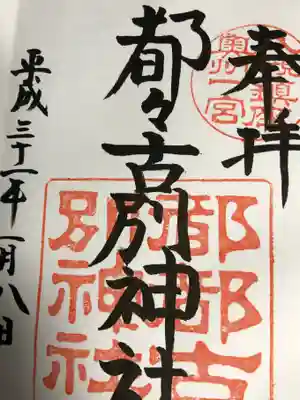 奉拝
都々古別神社
平成三十一年一月八日
奥州一宮
都都古
別神社